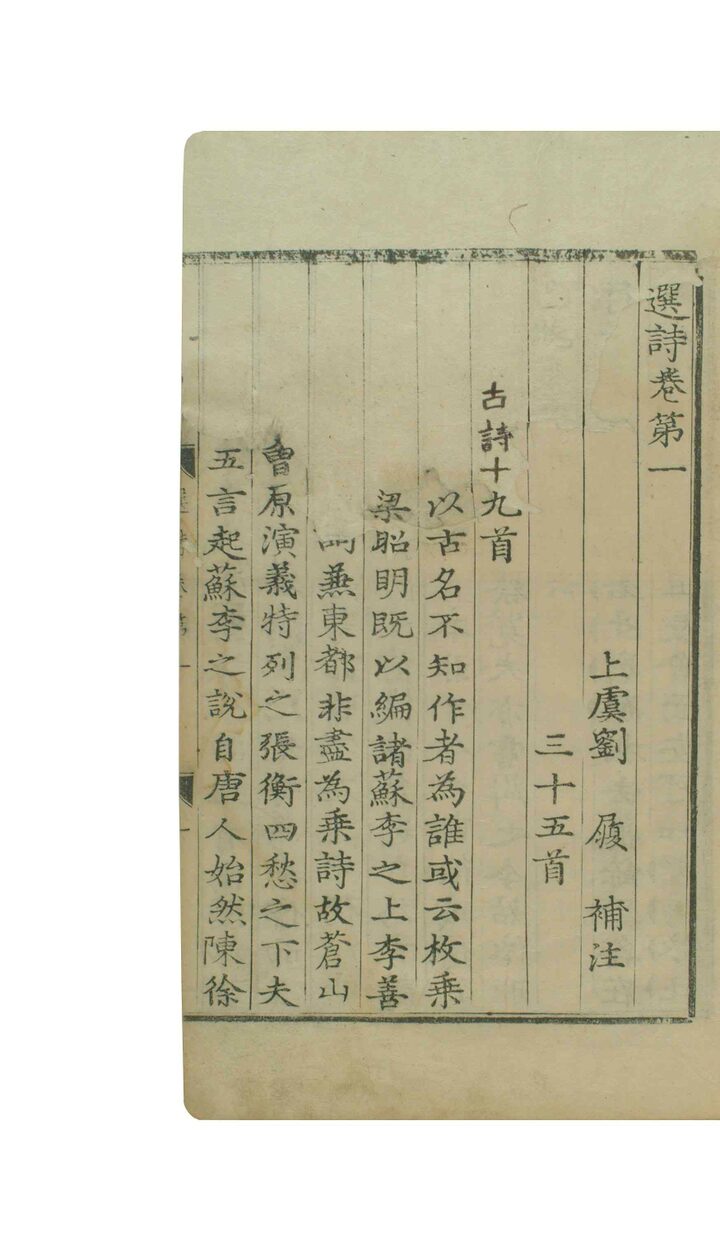 選詩卷第一
上虞劉 履 補注
三十五首
古詩十九首
以古名不知作者為誰或云枚乗
梁昭明既以編諸蘇李之上李善
兼東都非盡為乗詩故蒼山
曾原演義特列之張衡四愁之下夫
五言起蘇李之說自唐人始然陳徐